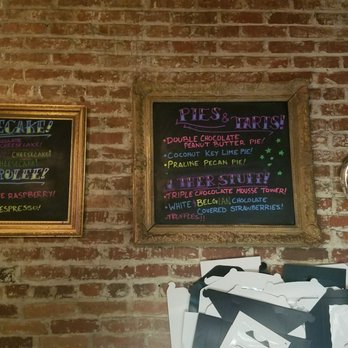 ECAKE!
CHEESECAKE!
CHEESECAKE!
RASPBERRY!
ESPRESSO!
PIES & TARTS!
• DOUBLE CHOCOLATE
PEANUT BUTTER PIE!
• COCONUT KEY LIME PIE!
• PRALINE PECAN PIE!
OTHER STUFF!
• TRIPLE CHOCOLATE MOUSE TOWER!
• WHITE & BELGIAN CHOCOLATE
COVERED STRAWBERRIES!
TRUFFLES!!